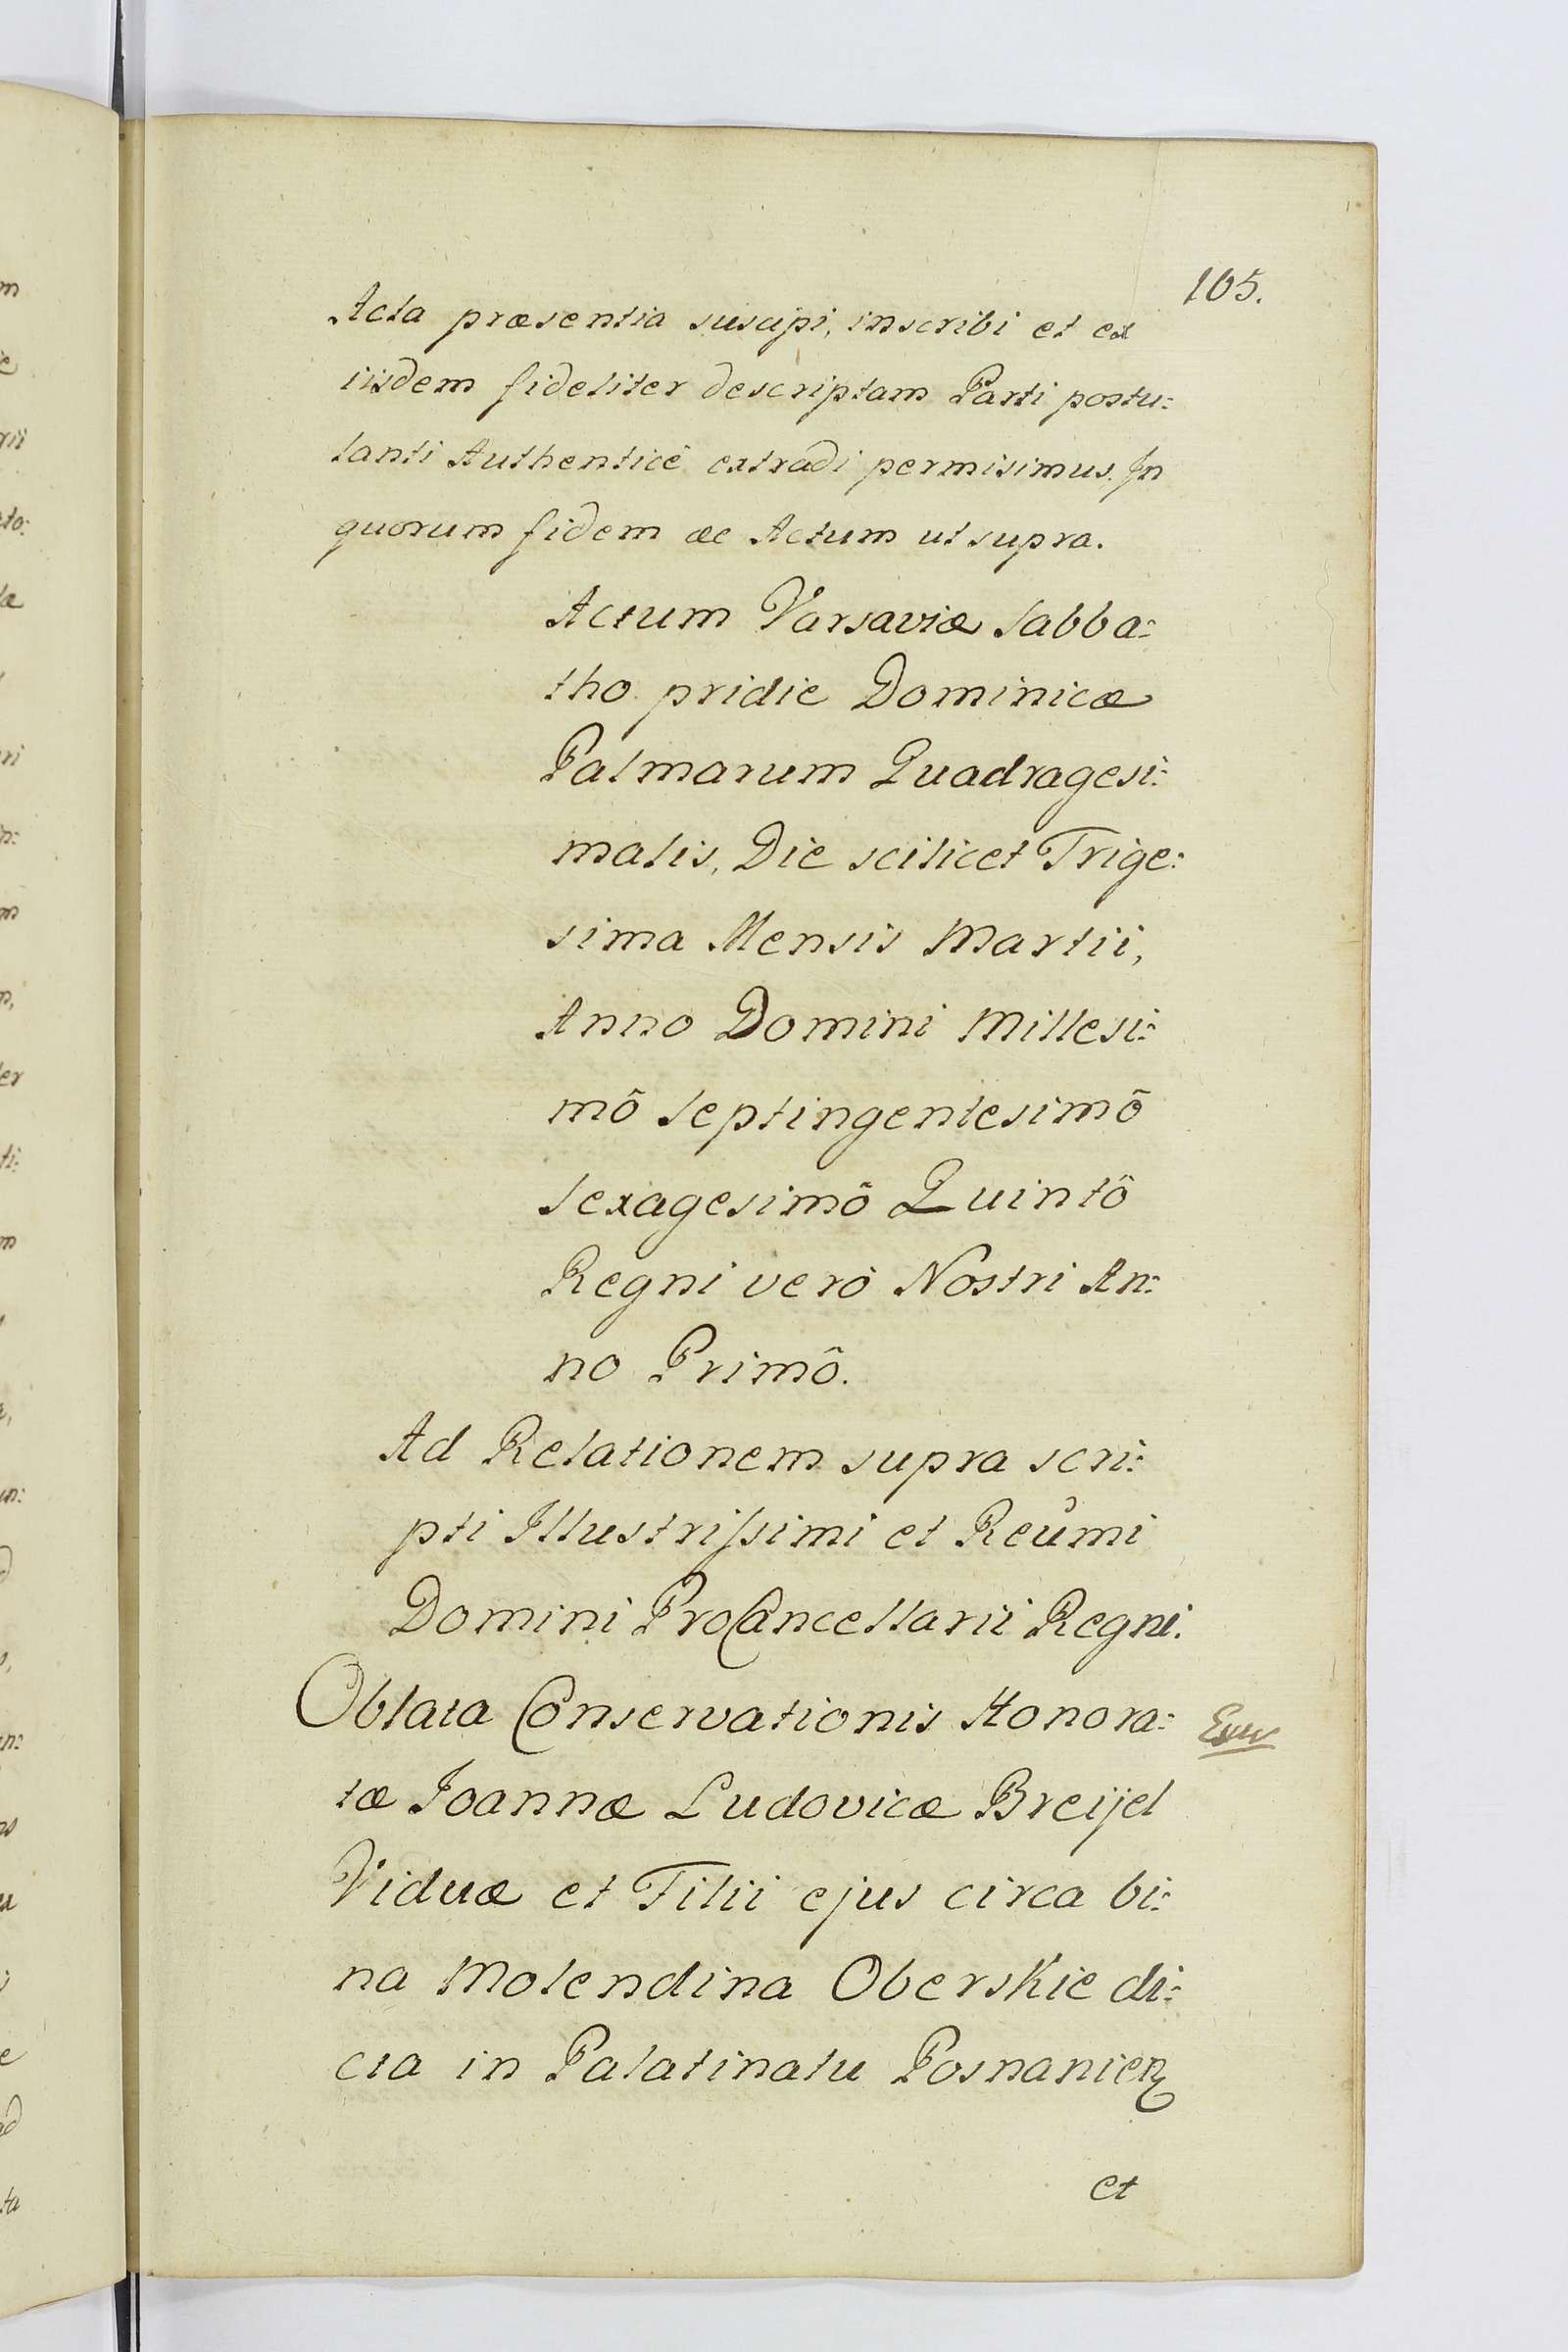 105.
Acta præsentia suscipi, inscribi et ex
iisdem fideliter descriptam Parti postu:
lanti Authenticê extradi permisimus. In
quorum fidem ac Actum ut supra.
Actum Varsaviæ Sabba:
tho pridie Dominicæ
Palmarum Quadragesi:
malis, Die scilicet Trige:
sima Mensis Martii,
Anno Domini Millesi:
mô Septingentesimô
Sexagesimô Quintô
Regni verò Nostri An:
no Primô.
Ad Relationem supra scri:
pti Illustrissimi et Reu͠mi
Domini ProCancellarii Regni.
Oblata Conservationis Honora:
tæ Joannæ Ludovicæ Breijel
Viduæ et Filii ejus circa bi:
na Molendina Oberskie di:
cta in Palatinatu Posnanien
et